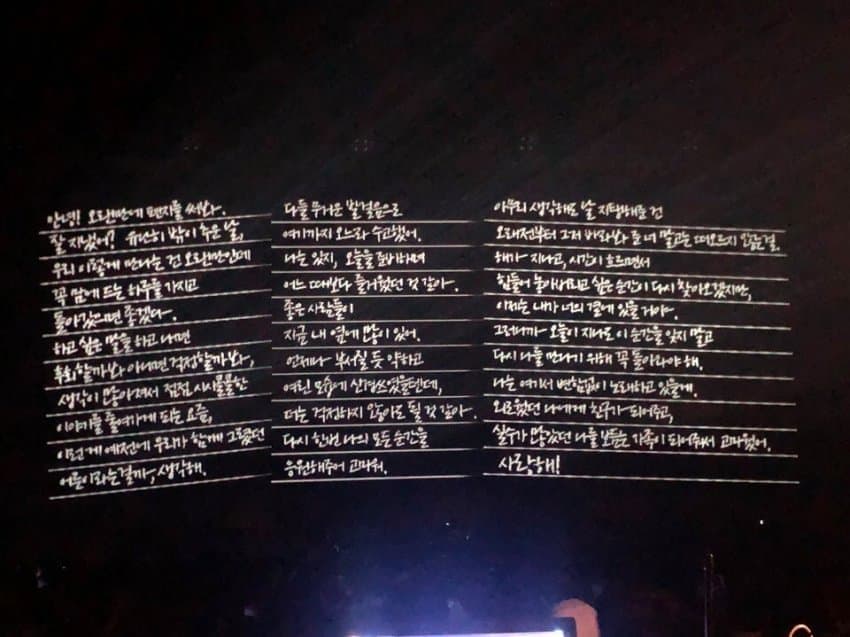 안녕! 오랜만에 편지를 써봐.
잘 지냈어? 유난히 밖이 추운 날,
우리 이렇게 만나는 건 오랜만인데
꼭 맘에 드는 하루를 가지고
돌아갔으면 좋겠다.
하고 싶은 말을 하고 나면
후회할까봐 아니면 걱정할까봐,
생각이 많아져서 점점 시시콜콜한
이야기를 줄여가게 되는 요즘,
이런 게 예전에 우리가 함께 그렸던
어른이라는걸까, 생각해.
다들 무거운 발걸음으로
여기까지 오느라 수고했어.
나는 있지, 오늘을 준비하며
어느 때보다 즐거웠던 것 같아.
좋은 사람들이
지금 내 옆에 많이 있어.
언제나 부서질 듯 약하고
여린 모습에 신경쓰였을텐데,
더는 걱정하지 않아도 될 것 같아.
다시 한번 나의 모든 순간을
응원해주어 고마워.
아무리 생각해도 날 지탱해준 건
오래전부터 그저 바라봐 준 너 말고는 떠오르지 않을걸.
해가 지나고, 시간이 흐르면서
힘들어 놓아버리고 싶은 순간이 다시 찾아오겠지만,
이제는 내가 너의 곁에 있을거야.
그러니까 오늘이 지나도 이 순간을 잊지 말고
다시 나를 만나기 위해 꼭 돌아와야 해.
나는 여기서 변함없이 노래하고 있을게.
외로웠던 나에게 친구가 되어주고,
실수가 많았던 나를 보듬는 가족이 되어줘서 고마웠어.
사랑해!